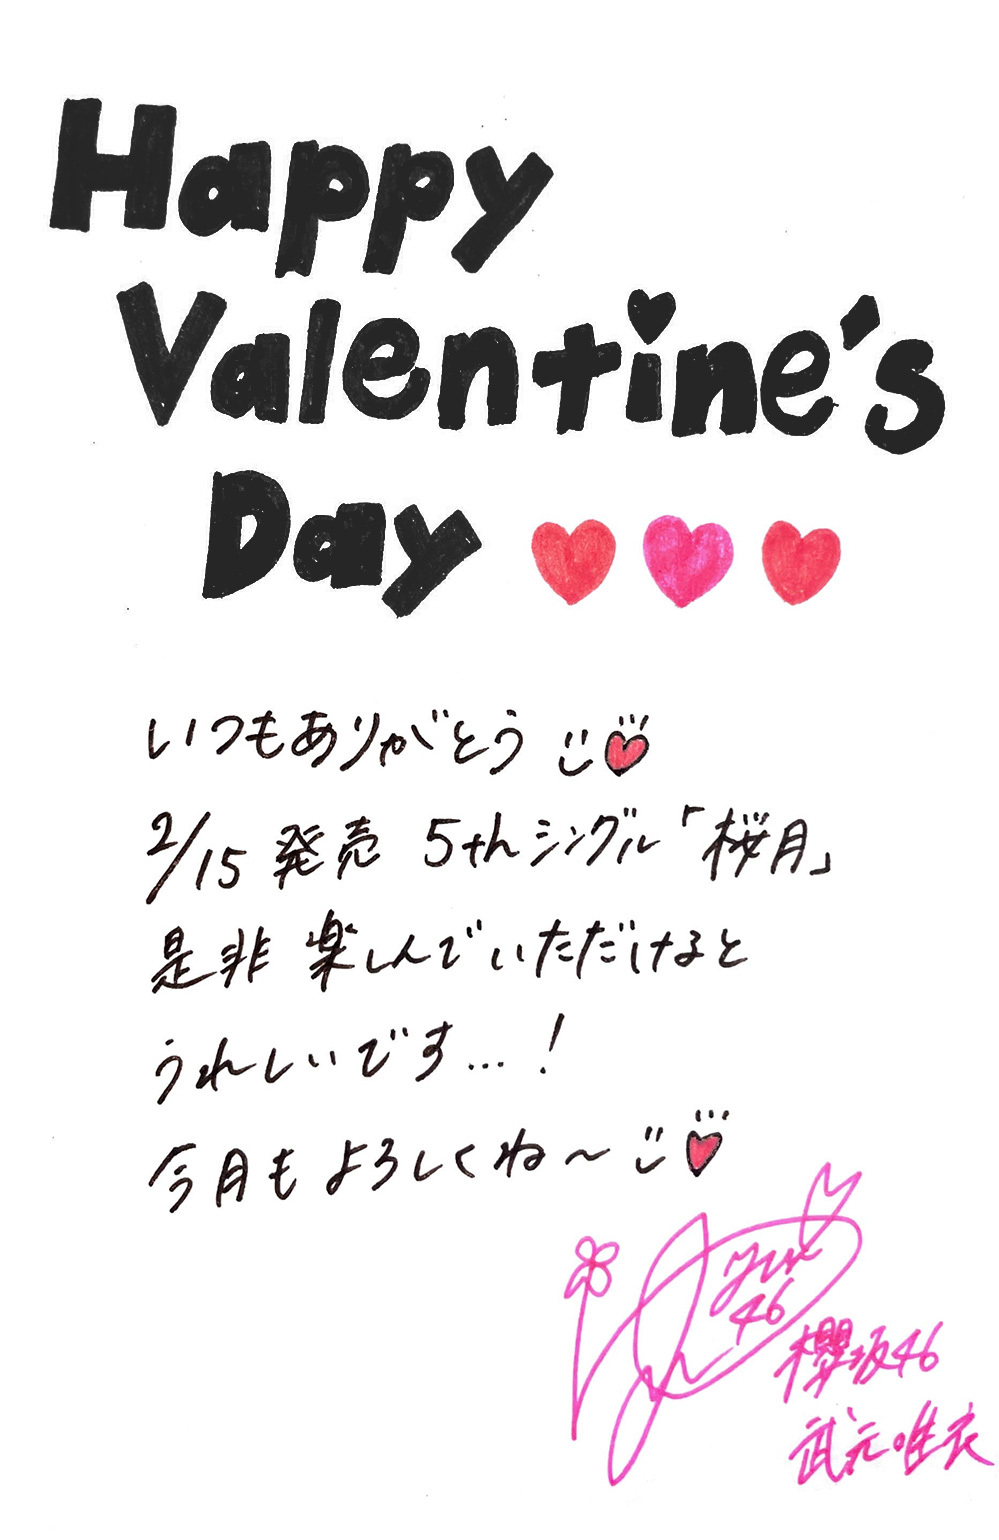 Happy
Valentine's
Day
いつもありがとう
2/15 発売 5thシングル「桜月」
是非 楽しんでいただけると
うれしいです…!
今月もよろしくね〜
Yui
46
櫻坂46
武元唯衣